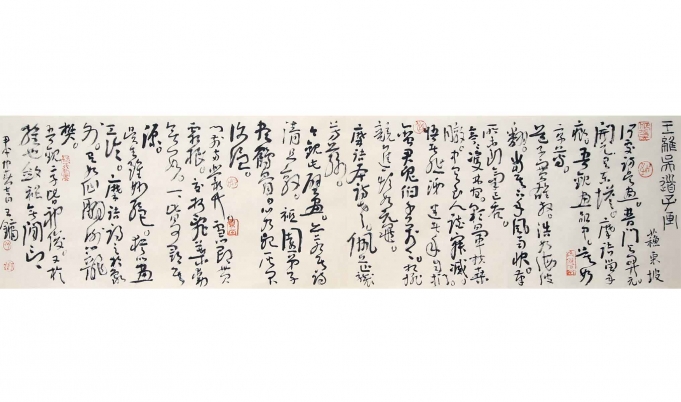 王維吳道子畫
蘇東坡
何處訪吳畫。普門與開元。
開元有東塔。摩詰留手
痕。吾觀畫品中。莫如
二子尊。
道子實雄放。浩如海波
翻。當其下手風雨快。筆
所未到氣已吞。
亭亭雙林間。彩暈扶桑
暾。中有至人談寂滅。
悟者悲涕迷者手自捫
蠻君鬼伯千萬萬。相排
競進頭如黿。
摩詰本詩老。佩芷襲
芳蓀。
今觀此壁畫。亦若其詩
清且敦。祇園弟子
盡鶴骨。心如死灰不
復溫。
門前兩叢竹。雪節貫
霜根。交柯亂葉動
無數。一一皆可尋其
源。
吳生雖妙絕。猶以畫
工論。摩詰得之於象
外。有如仙翮謝籠
樊。
吾觀二子皆神俊。又於
維也斂衽無間言。
王鏞